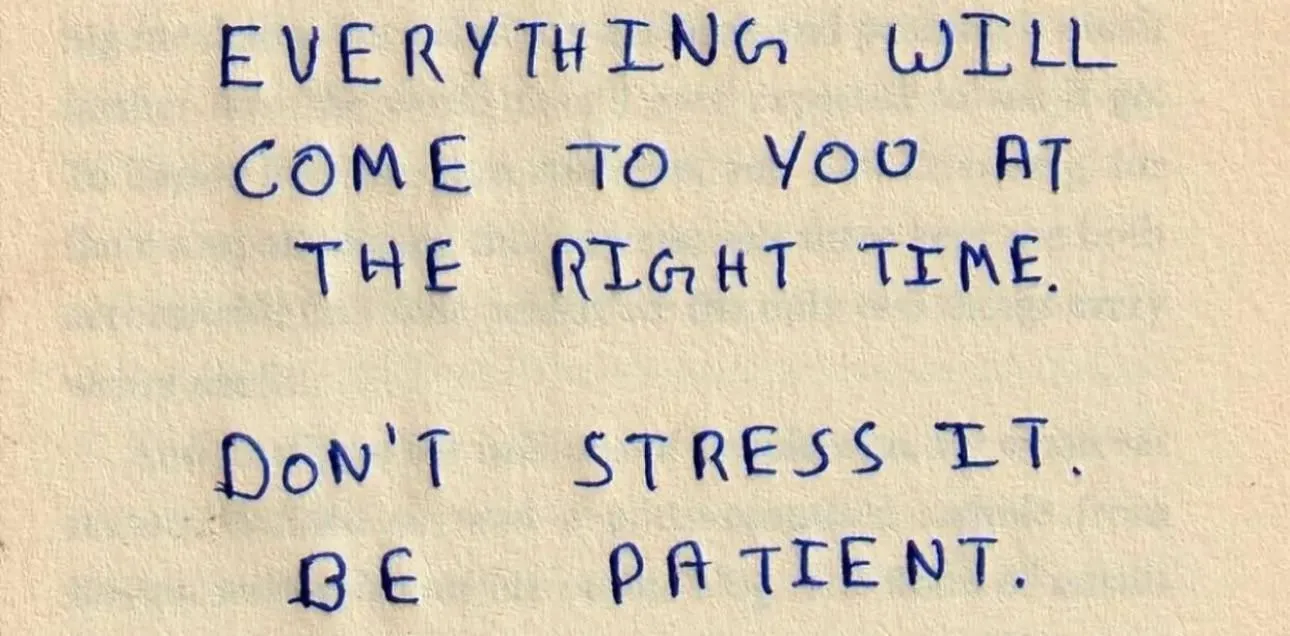 EVERYTHING WILL
COME TO YOU AT
THE RIGHT TIME.
DON'T STRESS IT.
BE PATIENT.